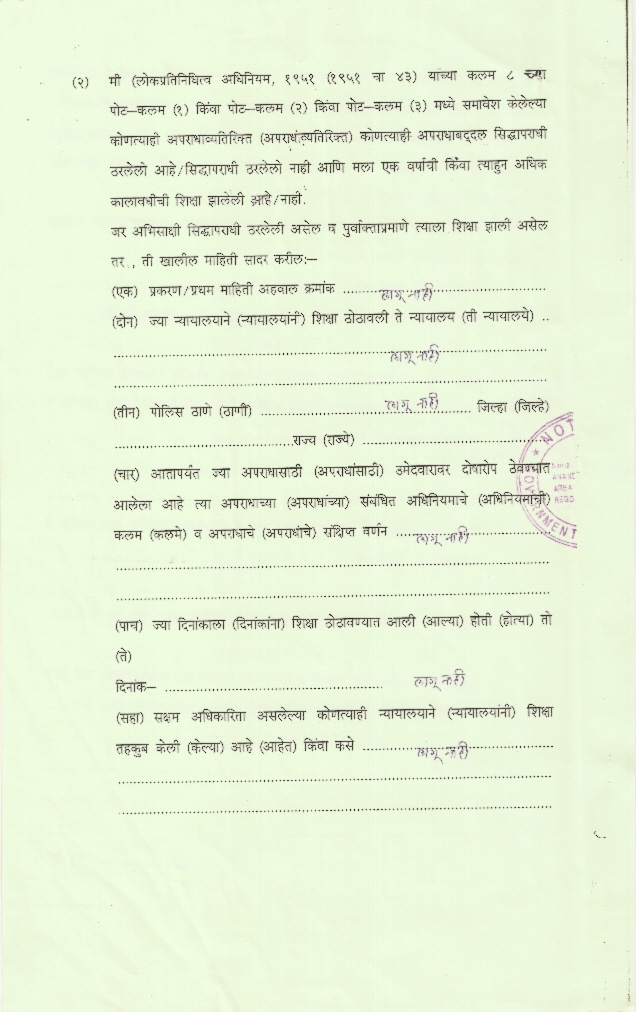 (२) मी (लोकप्रतिनिधित्व अधिनियम, १९५१ (१९५१ चा ४३) यांच्या कलम ८ च्या
पोट–कलम (१) किंवा पोट–कलम (२) किंवा पोट–कलम (३) मध्ये समावेश केलेल्या
कोणत्याही अपराधाव्यतिरिक्त (अपराधांव्यतिरिक्त) कोणत्याही अपराधाबद्दल सिद्धापराधी
ठरलेलो आहे/सिद्धापराधी ठरलेलो नाही आणि मला एक वर्षाची किंवा त्याहुन अधिक
कालावधीची शिक्षा झालेली आहे/नाही.
जर अभिसाक्षी सिद्धापराधी ठरलेली असेल व पुर्वाक्ताप्रमाणे त्याला शिक्षा झाली असेल
तर , ती खालील माहिती सादर करील:–
(एक) प्रकरण/प्रथम माहिती अहवाल क्रमांक ........ लागू नाही ........
(दोन) ज्या न्यायालयाने (न्यायालयांनी) शिक्षा ठोठावली ते न्यायालय (ती न्यायालये) ..
........ लागू नाही ........
(तीन) पोलिस ठाणे (ठाणी) ........ लागू नाही ........ जिल्हा (जिल्हे)
........ राज्य (राज्ये) ........
(चार) आतापर्यत ज्या अपराधासाठी (अपराधांसाठी) उमेदवारावर दोषारोप ठेवण्यात
आलेला आहे त्या अपराधाच्या (अपराधांच्या) संबंधित अधिनियमाचे (अधिनियमांची)
कलम (कलमे) व अपराधाचे (अपराधांचे) संक्षिप्त वर्णन ........ लागू नाही ........
(पाच) ज्या दिनांकाला (दिनांकांना) शिक्षा ठोठावण्यात आली (आल्या) होती (होत्या) तो
(ते)
दिनांक– ........ लागू नाही
(सहा) सक्षम अधिकारिता असलेल्या कोणत्याही न्यायालयाने (न्यायालयांनी) शिक्षा
तहकुब केली (केल्या) आहे (आहेत) किंवा कसे ........ लागू नाही ........